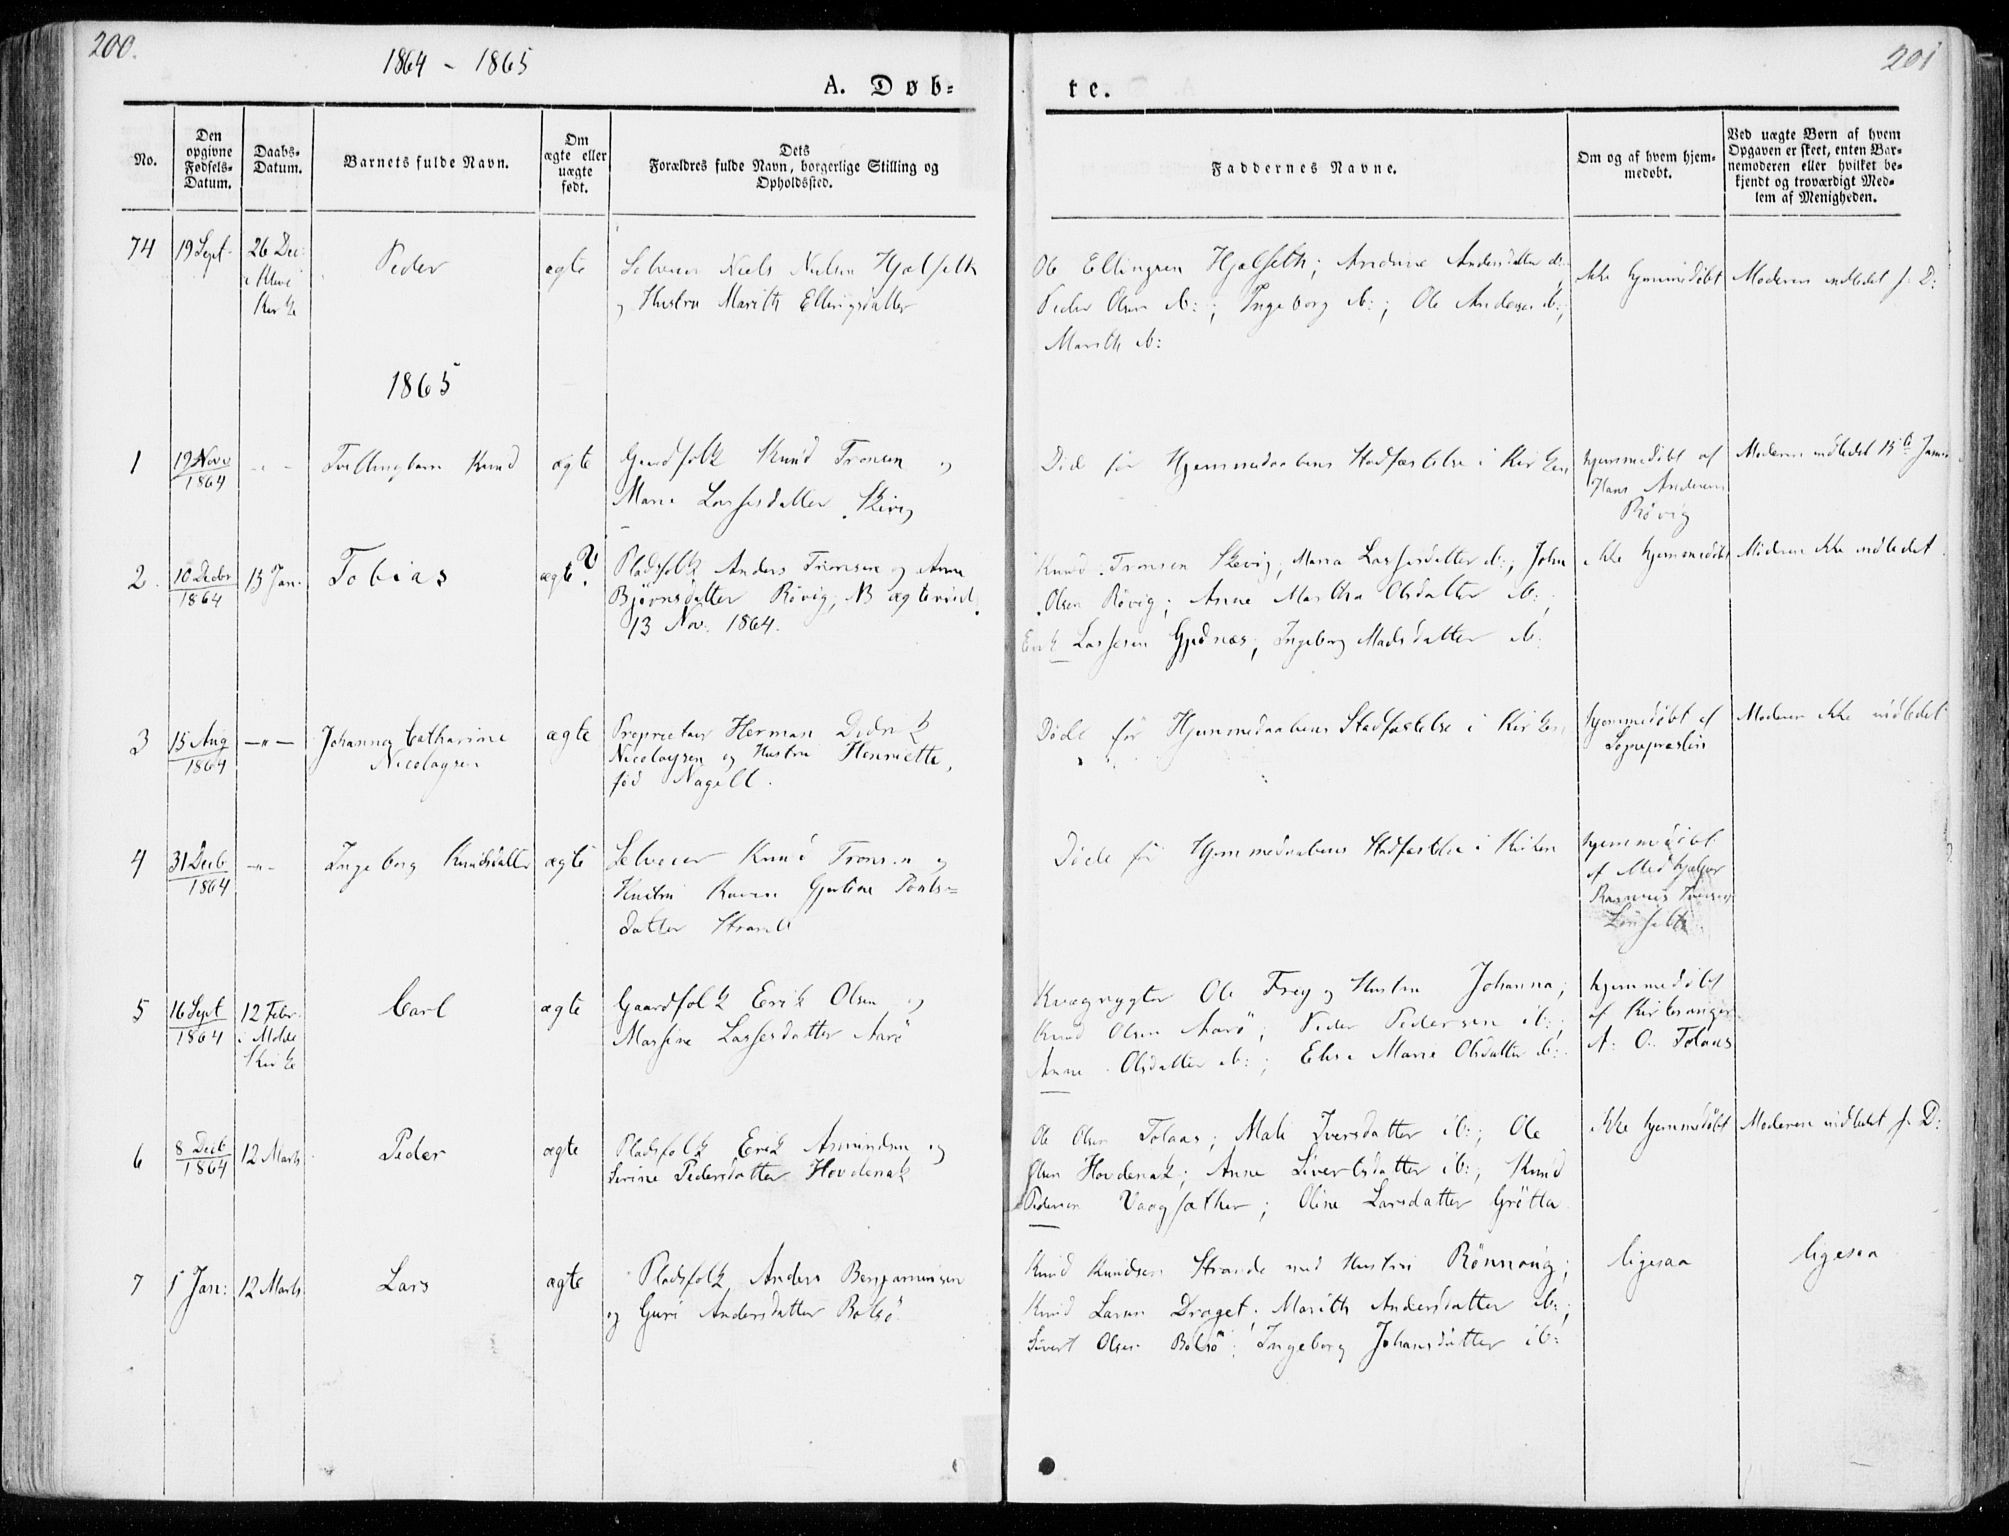 200.
1864 - 1865
A. Døb-
te.
201
No.
Den opgivne Fødsels-Datum.
Daabs-Datum.
Barnets fulde Navn.
Om ægte eller uægte født.
Dets Forældres fulde Navn, borgerlige Stilling og Opholdssted.
Faddernes Navne.
Om og af hvem hjem-medøbt.
Ved uægte Børn af hvem Opgaven er skeet, enten Bar-nemoderen eller hvilket be-kjendt og troværdigt Med-lem af Menigheden.
74
19 Sept.
26 Dec:
i
Kirke
Peder
ægte
Selveier Niels Nielsen Hjælseth
og Hustru Marith Ellingsdatter
Ole Ellingsen Hjælseth; Andrine Andersdatter ib:
Peder Olsen ib:; Ingeborg ib:; Ole Andersen ib:;
Marith ib:
ikke hjemmedøbt
Moderen indledet s. D:
1865
1
19 Nov
1864
- -
Tvillingbarn Knud
ægte
Gaardfolk Knud Tronsen og
Marie Lassesdatter Skevig
Død før Hjemmedaabens Stadfæstelse i Kirken
hjemmedøbt af
Hans Andersen
Røvig
Moderen indledet 15de Janr
2.
10 Decbr
1864
15 Jan.
Tobias
ægte?
Pladsfolk Anders Tronsen og Anne
Bjørnsdatter Røvig, NB ægteviet
13 Nov. 1864.
Knud Tronsen Skevig; Maria Lassesdatter ib:; John
Olsen Røvig; Anne Martha Olsdatter ib:;
Erik Lassesen Gjednæs; Ingeborg Madsdatter ib:
ikke hjemmedøbt
Moderen ikke indledet
3
15 Aug
1864
-"-
Johanna Catharine
Nicolaysen
ægte
Proprietair Herman Didrik
Nicolaysen og Hustru Henriette,
fød Nagell.
Døde før Hjemmedaabens Stadfæstelse i Kirken
hjemmedøbt af
Sognepræsten
Moderen ikke indledet
4
31 Decb
1864
-"-
Ingeborg Knudsdatter
ægte
Selveier Knud Tronsen og
Hustru Karen Gjertine Pouls-
datter Strande
Døde før Hjemmedaabens Stadfæstelse i Kirken
hjemmedøbt
af Medhjelper
Rasmus
5
16 Sept
1864
12 Febr.
i Molde
Kirke
Carl
ægte
Gaardfolk Erik Olsen og
Massine Lassesdatter Aarø
Kvægrygter Ole Frey og Hustru Johanna;
Knud Olsen Aarø; Peder Pedersen ib:;
Anne Olsdatter ib:; Elise Marie Olsdatter ib:
hjemmedøbt
af Kirkesanger
A: O. Tolaas
6
8 Decb
1864
12 Marts
Peder
ægte
Pladsfolk Erik Asmundsen og
Serine Pedersdatter Hovdenak
Ole Olsen Tolaas; Mali Iversdatter ib:; Ole
Olsen Hovdenak; Anne Sivertsdatter ib:; Knud
Pedersen Vaagsæther; Oline Larsdatter Grøtta
ikke hjemmedøbt
Moderen indledet s. D:
7
1 Jan:
12 Marts
Lars
ægte
Pladsfolk Anders Benjaminsen
og Guri Andersdatter Bolsø
Knud Knudsen Strande med Hustru Rønnaug;
Knud Larsen Draget; Marith Andersdatter ib:;
Sivert Olsen Bolsø; Ingeborg Johansdatter ib:
ligesaa
ligesaa